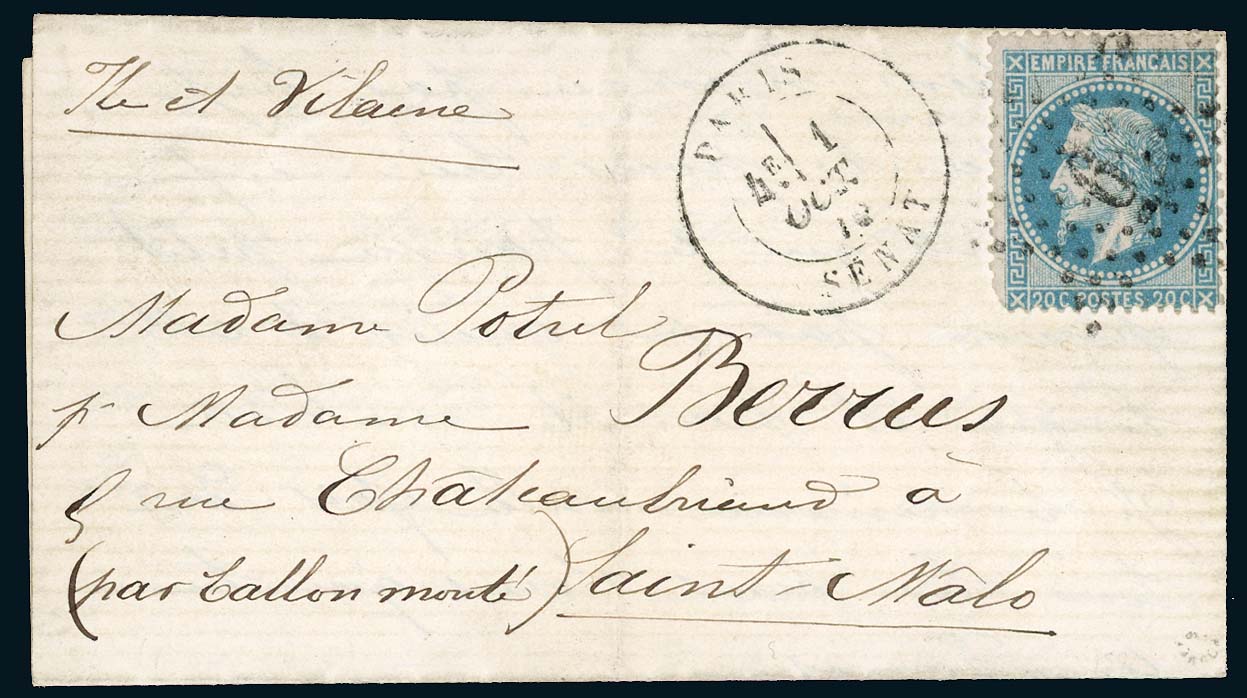 Ile et Vilaine
PARIS
4E/ 1
OCT
SÉNAT
EMPIRE FRANÇAIS
20 C POSTES 20 C
Madame Potrel
pr Madame Berrus
5 rue Chateaubriand à
(par ballon monté) Saint-Malo